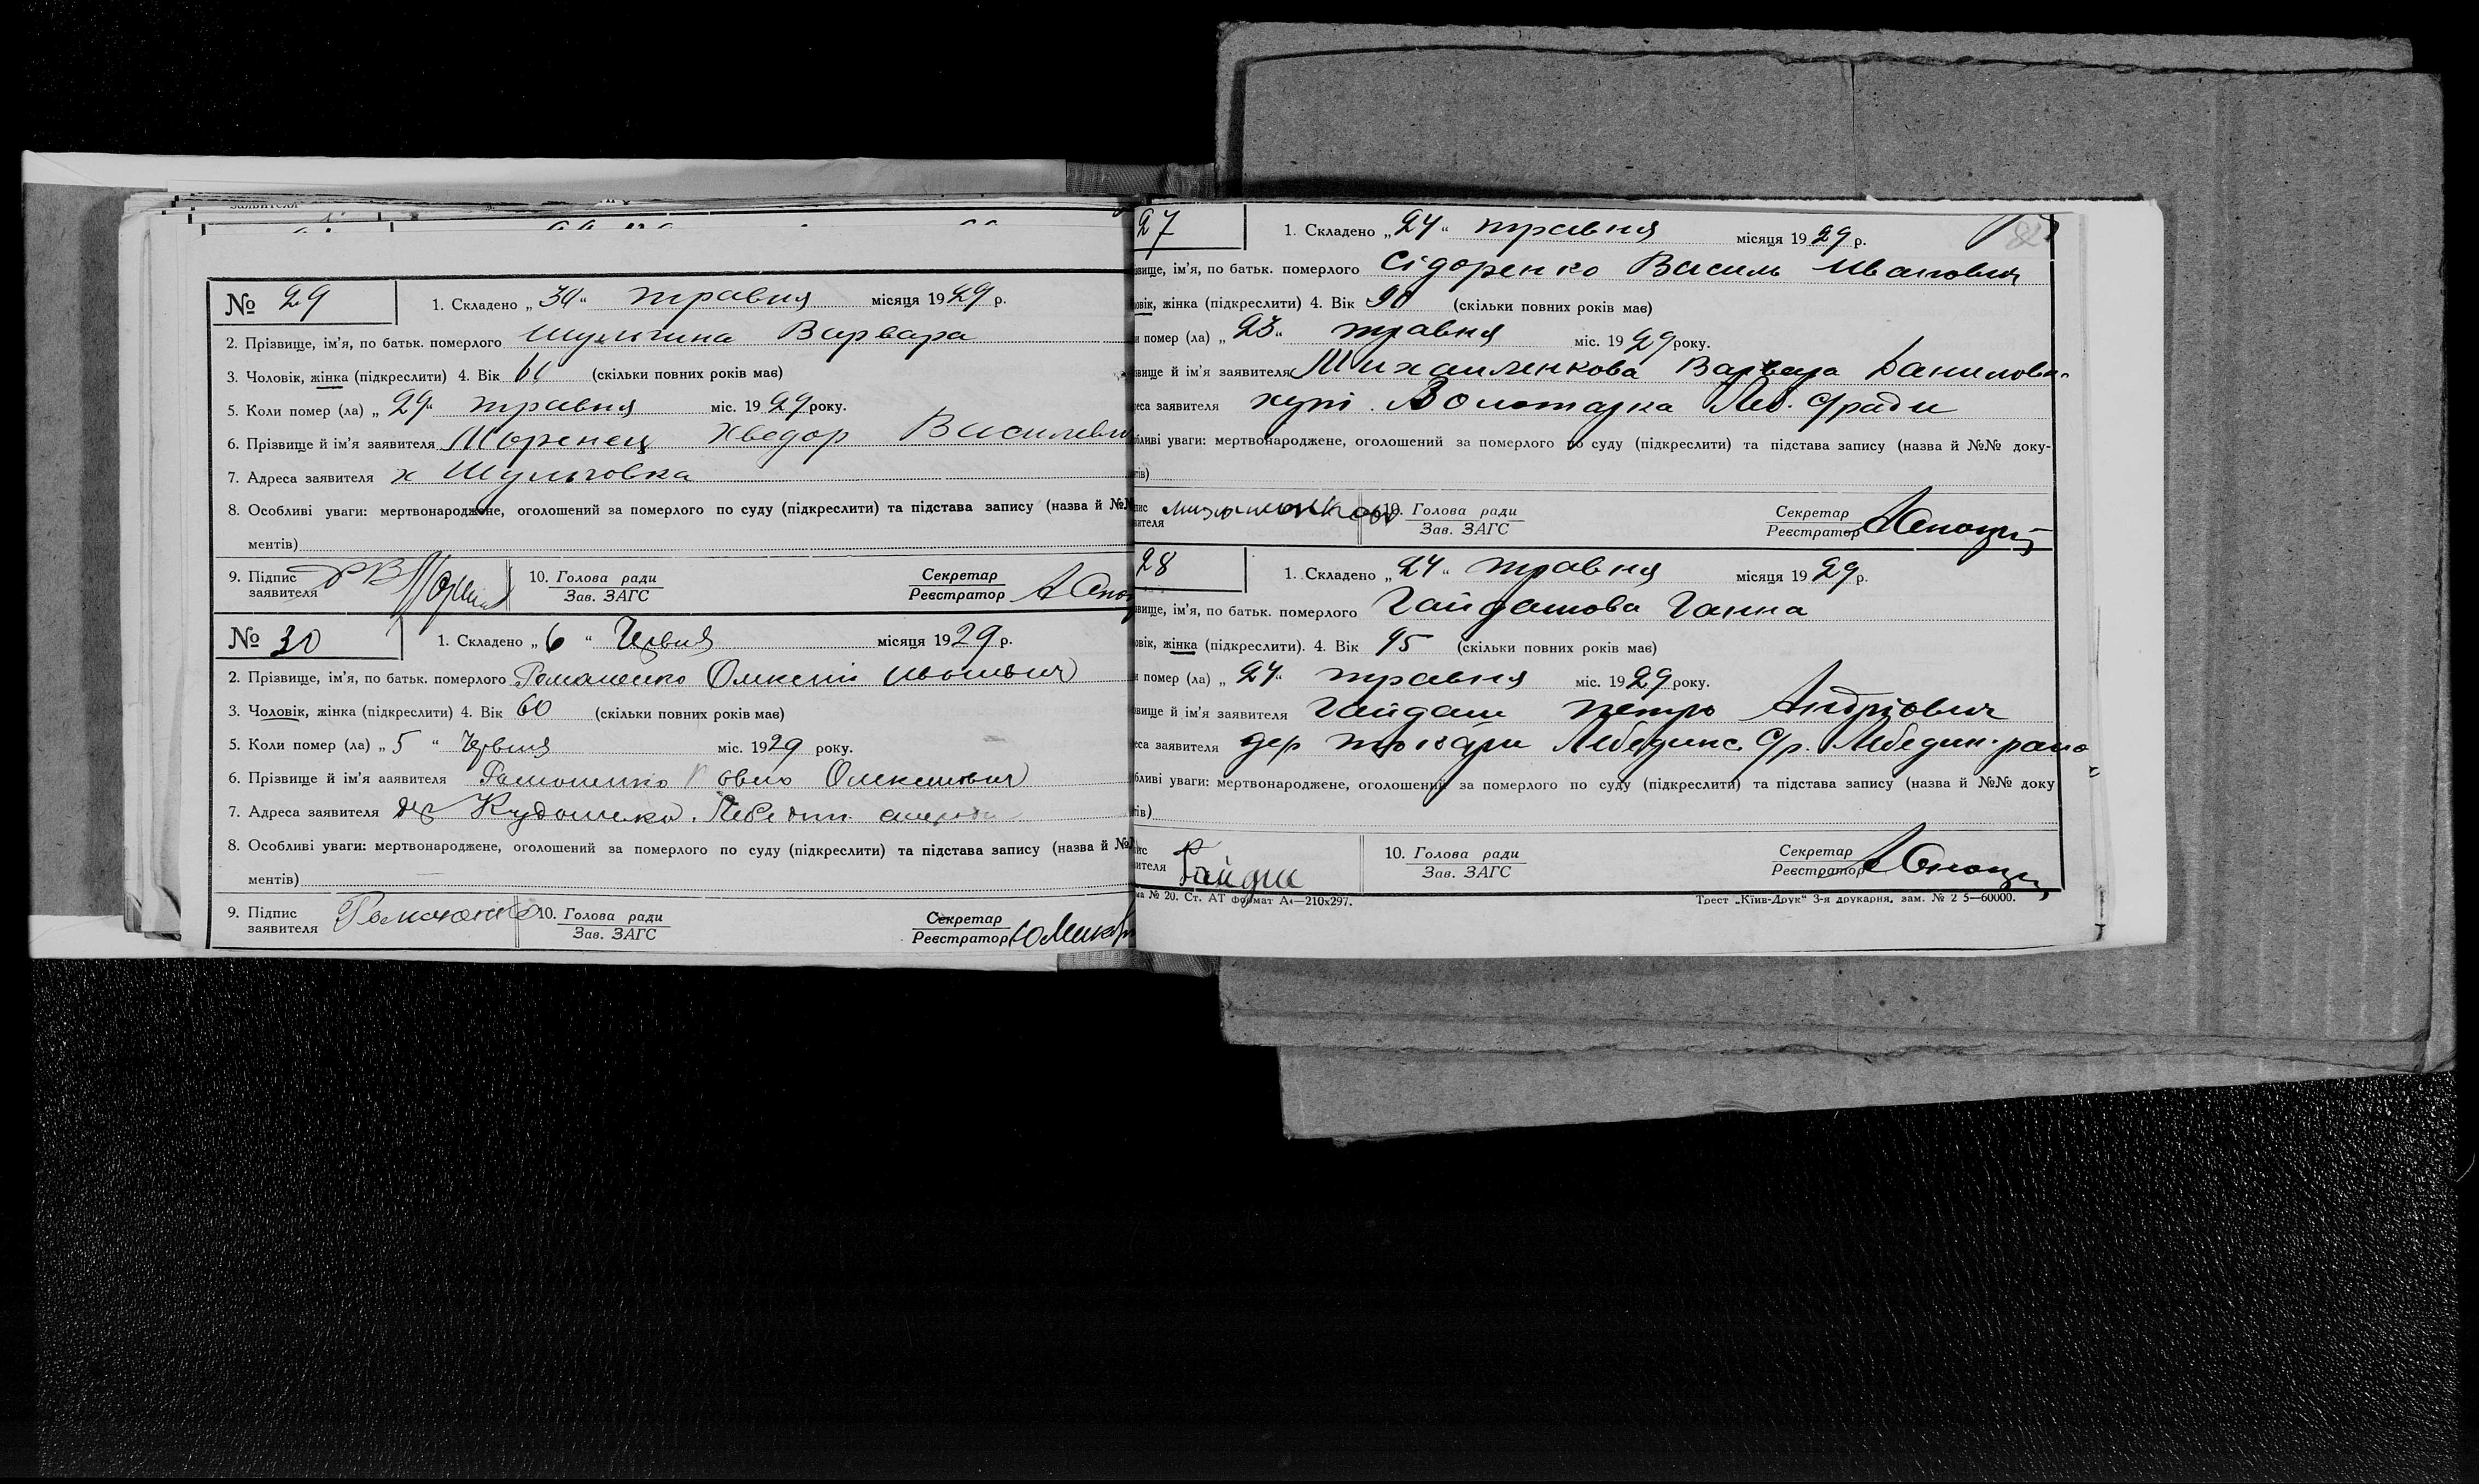 заявителя
№ 29
1. Складено „30“ травня місяця 1929 р.
2. Прізвище, ім'я, по батьк. померлого Шульгина Варвара
3. Чоловік, жінка (підкреслити) 4. Вік (скільки повних років має)
5. Коли помер (ла) „29“ травня міс. 1929 року.
6. Прізвище й ім'я заявителя Моренец Хведор
7. Адреса заявителя х Шульговка
8. Особливі уваги: мертвонароджене, оголошений за померлого по суду (підкреслити) та підстава запису (назва й №№
ментів)
9. Підпис заявителя
10. Голова ради
Зав. ЗАГС
Секретар
Реєстратор
№ 30
1. Складено „6“ Червня місяця 1929 р.
2. Прізвище, ім'я, по батьк. померлого Романенко Олексій Иванович
3. Чоловік, жінка (підкреслити) 4. Вік 60 (скільки повних років має)
5. Коли помер (ла) „5“ Червня міс. 1929 року.
6. Прізвище й ім'я заявителя Романенко Олексиевич
7. Адреса заявителя дер
8. Особливі уваги: мертвонароджене, оголошений за померлого по суду (підкреслити) та підстава запису (назва й №
ментів)
9. Підпис заявителя Романенко
10. Голова ради
Зав. ЗАГС
Секретар
Реєстратор
27
1. Складено „24“ травня місяця 1929 р.
вище, ім'я, по батьк. померлого Сідоренко Василь Иванович
овік, жінка (підкреслити) 4. Вік 90 (скільки повних років має)
и помер (ла) „23“ травня міс. 1929 року.
вище й ім'я заявителя Михайленкова Варвара
еса заявителя хут. Золотарка Леб. с/ради
бливі уваги: мертвонароджене, оголошений за померлого по суду (підкреслити) та підстава запису (назва й №№ доку-
тів)
пис
вителя
10. Голова ради
Зав. ЗАГС
Секретар
Реєстратор
28
1. Складено „24“ травня місяця 1929 р.
вище, ім'я, по батьк. померлого Гайдашова Ганна
овік, жінка (підкреслити). 4. Вік (скільки повних років має)
и помер (ла) „24“ травня міс. 1929 року.
вище й ім'я заявителя Гайдаш Петро Андріович
еса заявителя дер Токари Лебединс. С/р. Лебедин. рано
бливі уваги: мертвонароджене, оголошений за померлого по суду (підкреслити) та підстава запису (назва й №№ доку
тів)
пис
вителя Гайдаш
10. Голова ради
Зав. ЗАГС
Секретар
Реєстратор
ма № 20. Ст. АТ формат А4—210х297.
Трест „Київ-Друк“ 3-я друкарня, зам. № 2 5—60000.